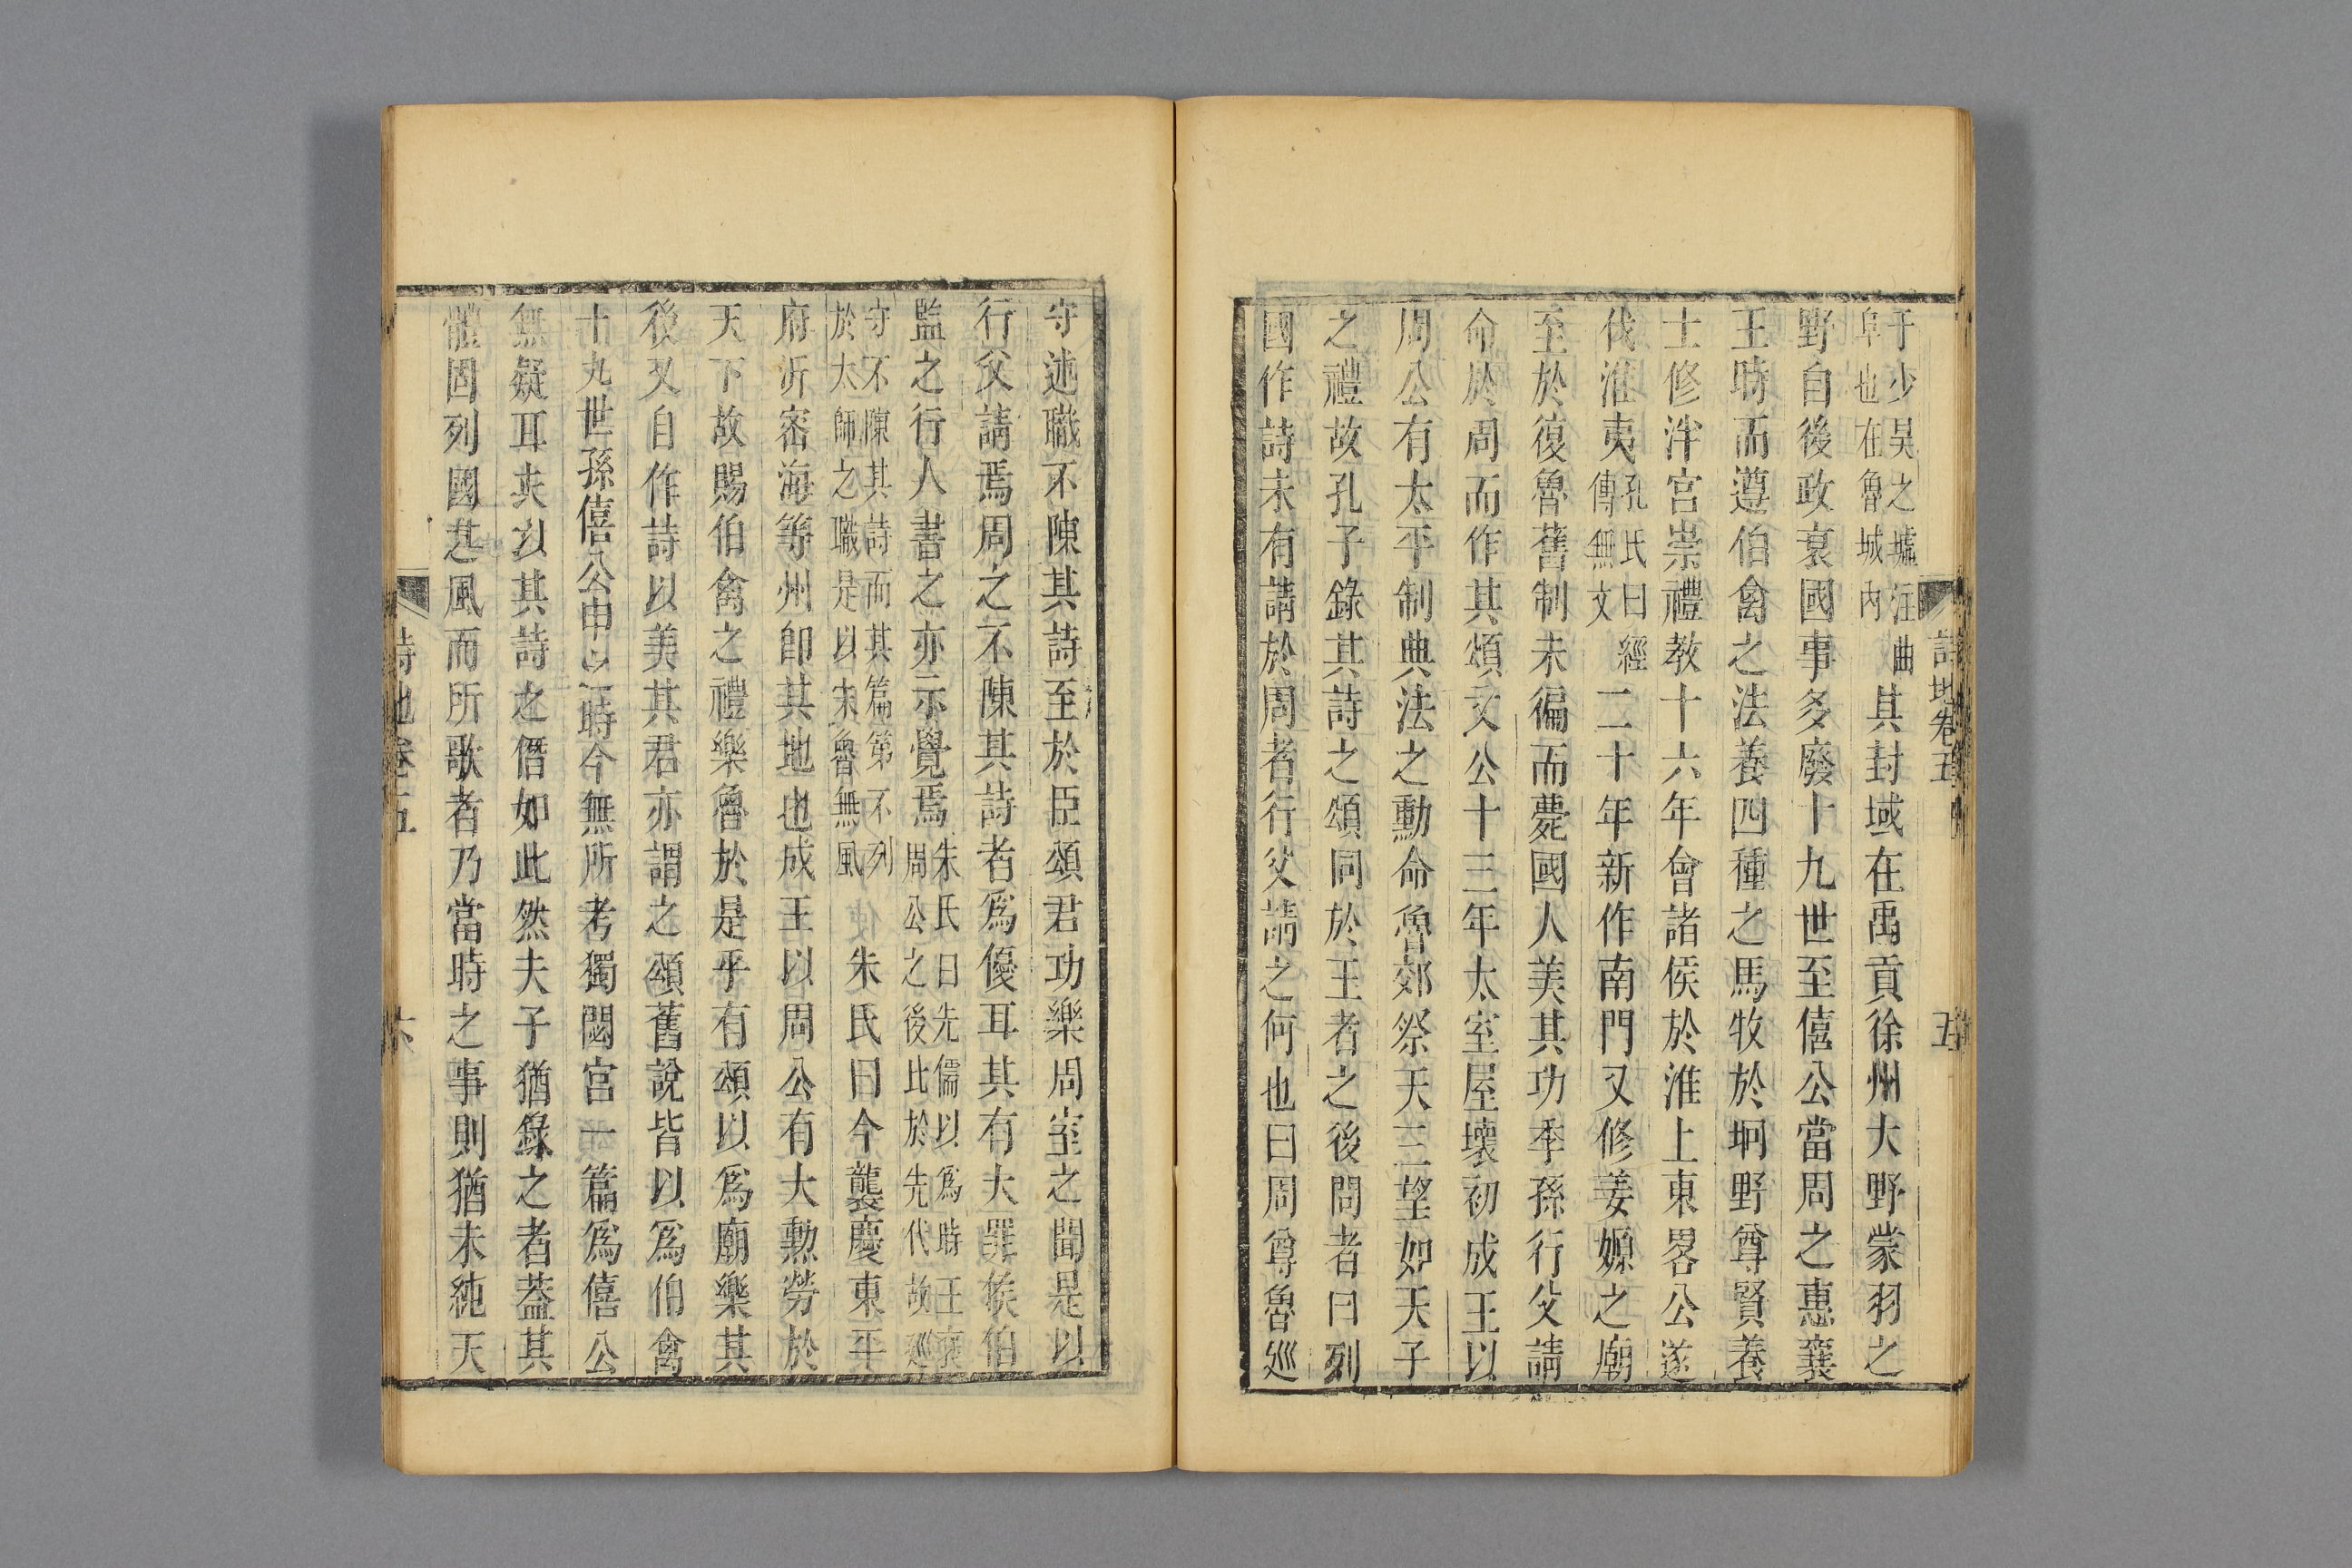 詩地卷五
五
于少昊之墟注曲
阜也在魯城内
其封域在禹貢徐州大野蒙羽之
野自後政衰國事多廢十九世至僖公當周之惠襄
王時而遵伯禽之法養四種之馬牧於坰野尊賢養
士修泮宮崇禮教十六年會諸侯於淮上東畧公遂
伐淮夷
孔氏曰經
傳無文
二十年新作南門又修姜嫄之廟
至於復魯舊制未徧而薨國人美其功季孫行父請
命於周而作其頌文公十三年太室屋壞初成王以
周公有太平制典法之勳命魯郊祭天三望如天子
之禮故孔子錄其詩之頌同於王者之後問者曰列
國作詩未有請於周者行父請之何也曰周尊魯巡
守述職不陳其詩至於臣頌君功樂周室之聞是以
行父請焉周之不陳其詩者爲優耳其有大罪侯伯
監之行人書之亦示覺焉
朱氏曰先儒以爲時王褒
周公之後比於先代故巡
守不陳其詩而其篇第不列
於太師之職是以宋魯無風
朱氏曰今襲慶東平
府沂密海等州卽其地也成王以周公有大勲勞於
天下故賜伯禽之禮樂魯於是乎有頌以爲廟樂其
後又自作詩以美其君亦謂之頌舊說皆以爲伯禽
十九世孫僖公申之時今無所考獨閟宮一篇爲僖公
無疑耳夫以其詩之僭如此然夫子猶錄之者葢其
體固列國之風而所歌者乃當時之事則猶未純天
詩地卷五
六